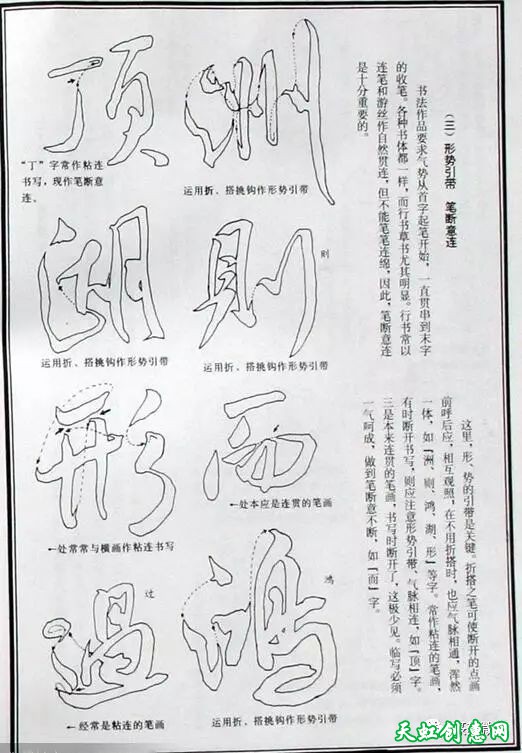 （三）形势引带　笔断意连
书法作品要求气势从首字起笔开始，一直贯串到末字
的收笔。各种书体都一样，而行书草书尤其明显。行书常以
连笔和游丝作自然贯连，但不能笔笔连绵，因此，笔断意连
是十分重要的。
这里，形、势的引带是关键。折搭之笔可使断开的点画
前呼后应，相互观照，在不用折搭时，也应气脉相通，浑然
一体，如「洲、则、鸿、湖、形」等字。常作粘连的笔画，
有时断开书写，则应注意形势引带、气脉相连，如「顶」字。
三是本来连贯的笔画，书写时断开了，这极少见。临写必须
一气呵成，做到笔断意不断，如「而」字。
洲
运用折、搭挑钩作形势引带
頂
“丁”字常作粘连
书写，现作笔断意
连。
則
则
运用折、搭挑钩作形势引带
湖
运用折、搭挑钩作形势引带
而
←处本应是连贯的笔画
形
←处常常与横画作粘连书写
鴻
鸿
运用折、搭挑钩作形势引带
過
过
←经常是粘连的笔画
天虹创意网